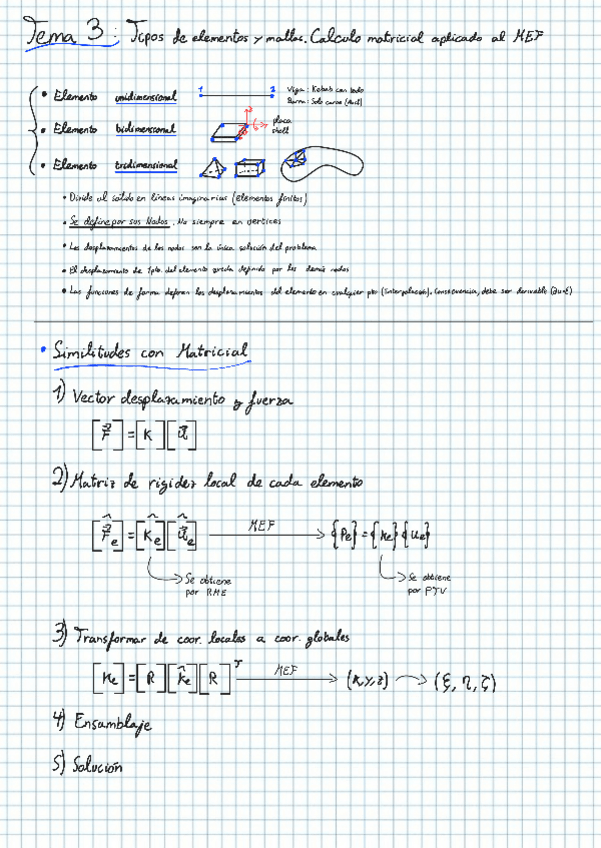 Tema 3: Tipos de elementos y mallas. Calculo matricial aplicado al MEF
• Elemento unidimensional 1 2 Viga: Kebab con todo
Barra: Solo carne (Axil)
• Elemento bidimensional placa
shell
• Elemento tridimensional
• Divide al solido en lineas imaginarias (elementos finitos)
• Se define por sus Nodos. No siempre en vertices
• Los desplazamientos de los nodos son la única solución del problema
• El desplazamiento de 1 pto. del elemento queda definido por los demás nodos
• Las funciones de forma definen los desplazamientos del elemento en cualquier pto (Interpolación). Consecuencia, debe ser derivable
• Similitudes con Matricial
1) Vector desplazamiento y fuerza
[F] = [K] [u]
2) Matriz de rigidez local de cada elemento
[F̂e] = [K̂e] [ûe] MEF {Pe} = {Ke} {ue}
Se obtiene Se obtiene
por RME por PTV
3) Transformar de coor. locales a coor. globales
[Ke] = [R] [K̂e] [R]ᵀ MEF (x, y, z) → (ξ, η, ζ)
4) Ensamblaje
5) Solución